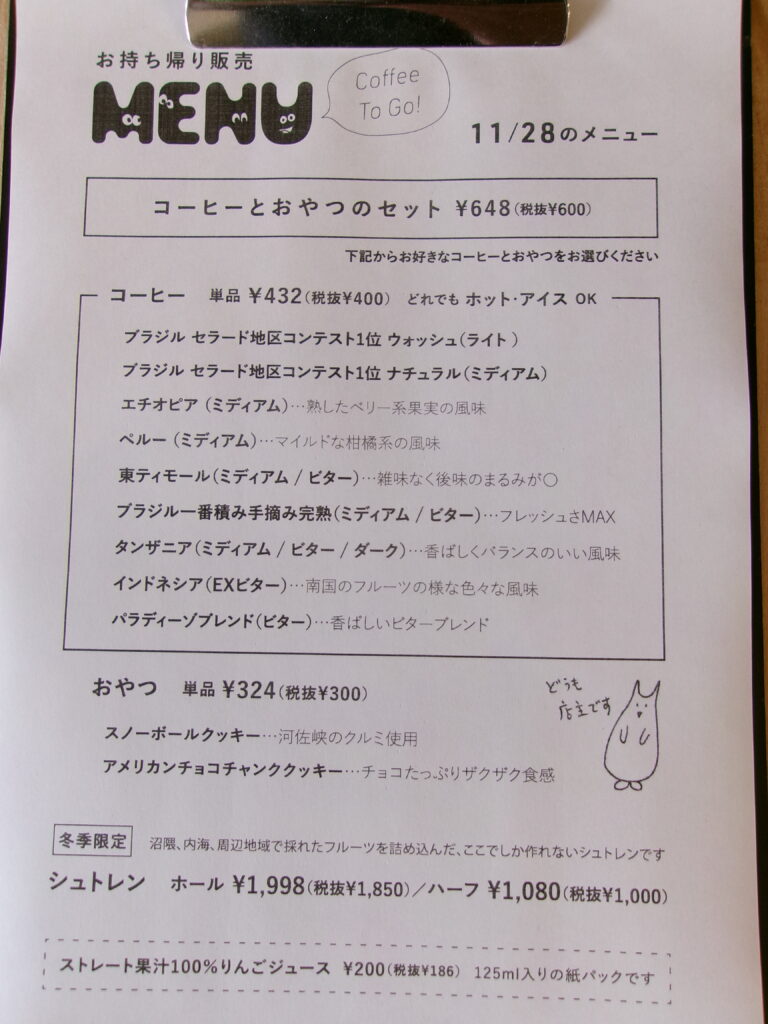 お持ち帰り販売
MENU
Coffee
To Go!
11/28のメニュー
コーヒーとおやつのセット ¥648(税抜¥600)
下記からお好きなコーヒーとおやつをお選びください
コーヒー 単品 ¥432(税抜¥400) どれでも ホット・アイス OK
ブラジル セラード地区コンテスト1位 ウォッシュ(ライト )
ブラジル セラード地区コンテスト1位 ナチュラル(ミディアム)
エチオピア (ミディアム)…熟したベリー系果実の風味
ペルー (ミディアム)…マイルドな柑橘系の風味
東ティモール(ミディアム / ビター)…雑味なく後味のまるみが〇
ブラジル一番積み手摘み完熟(ミディアム / ビター)…フレッシュさMAX
タンザニア(ミディアム / ビター / ダーク)…香ばしくバランスのいい風味
インドネシア(EXビター)…南国のフルーツの様な色々な風味
パラディーゾブレンド(ビター)…香ばしいビターブレンド
おやつ 単品 ¥324(税抜¥300)
どうも
店主です
スノーボールクッキー…河佐峡のクルミ使用
アメリカンチョコチャンククッキー…チョコたっぷりザクザク食感
冬季限定 沼隈、内海、周辺地域で採れたフルーツを詰め込んだ、ここでしか作れないシュトレンです
シュトレン ホール ¥1,998(税抜¥1,850)/ハーフ ¥1,080(税抜¥1,000)
ストレート果汁100%りんごジュース ¥200(税抜¥186) 125ml入りの紙パックです